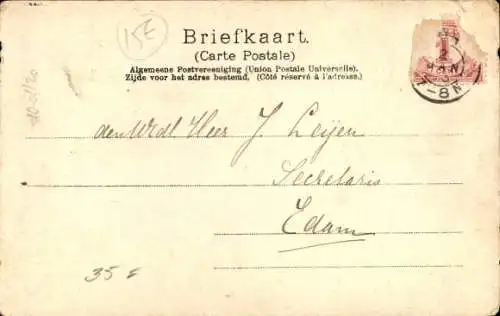 15E
Briefkaart.
(Carte Postale)
Algemeene Postvereeniging (Union Postale Universelle).
Zijde voor het adres bestemd. (Côté réservé à l'adresse.)
1/2
8-N
den Wedl Heer J. Leijen
Secretaris
Edam
35